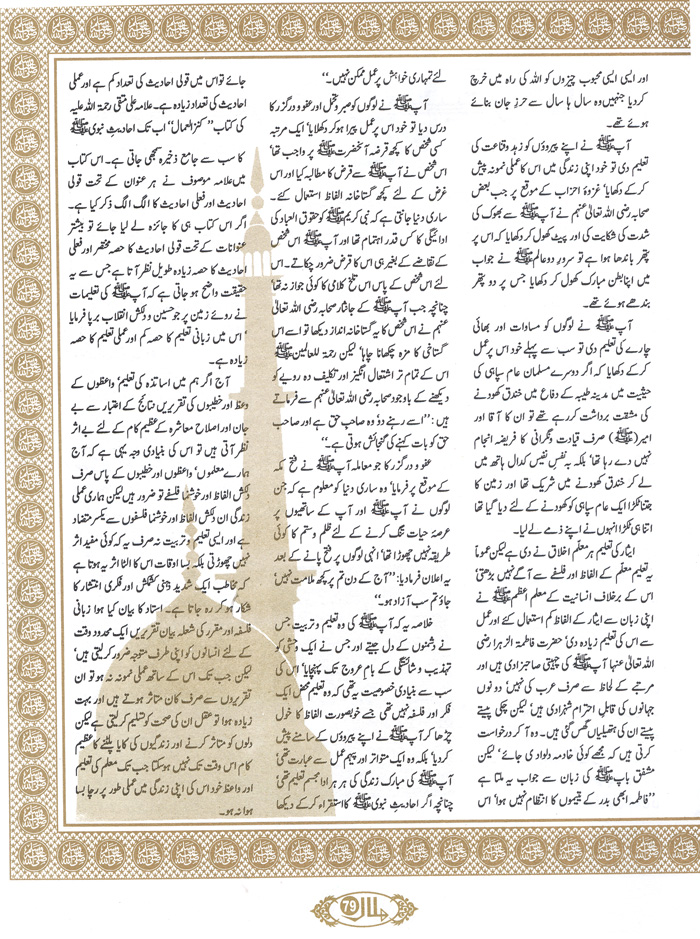 اور ایسی ایسی محبوب چیزوں کو اللہ کی راہ میں خرچ
کر دیا جنہیں وہ سال ہا سال سے حرزِ جان بنائے
ہوئے تھے۔
آپ ﷺ نے اپنے پیروؤں کو زہد وقناعت کی
تعلیم دی تو خود اپنی زندگی میں اس کا عملی نمونہ پیش
کر کے دکھایا‘ غزوۂ احزاب کے موقع پر جب بعض
صحابہ رضی اللہ تعالیٰ عنہم نے آپ ﷺ سے بھوک کی
شدت کی شکایت کی اور پیٹ کھول کر دکھایا کہ اس پر
پتھر باندھا ہوا ہے تو سرور دو عالم ﷺ نے جواب
میں اپنا بطن مبارک کھول کر دکھایا جس پر دو پتھر
بندھے ہوئے تھے۔
آپ ﷺ نے لوگوں کو مساوات اور بھائی
چارے کی تعلیم دی تو سب سے پہلے خود اس پر عمل
کر کے دکھایا کہ اگر دوسرے مسلمان عام سپاہی کی
حیثیت میں مدینہ طیبہ کے دفاع میں خندق کھودنے
کی مشقت برداشت کر رہے تھے تو ان کا آقا اور
امیر (ﷺ) صرف قیادت ونگرانی کا فریضہ انجام
نہیں دے رہا تھا‘ بلکہ بہ نفسِ نفیس کدال ہاتھ میں
لے کر خندق کھودنے میں شریک تھا اور زمین کا
جتنا ٹکڑا ایک عام سپاہی کو کھودنے کے لئے دیا گیا تھا
اتنا ہی ٹکڑا انہوں نے اپنے ذمے لے لیا۔
ایثار کی تعلیم ہر معلّم اخلاق نے دی ہے لیکن عموماً
یہ تعلیم معلّم کے الفاظ اور فلسفے سے آگے نہیں بڑھتی‘
اس کے برخلاف انسانیت کے معلم اعظم ﷺ نے
اپنی زبان سے ایثار کے الفاظ کم استعمال کئے اور عمل
سے اس کی تعلیم زیادہ دی‘ حضرت فاطمۃ الزہرا رضی
اللہ تعالیٰ عنہا آپ ﷺ کی چہیتی صاحبزادی ہیں اور
مرتبے کے لحاظ سے صرف عرب کی نہیں‘ دونوں
جہانوں کی قابلِ احترام شہزادی ہیں‘ لیکن چکی پیستے
پیستے ان کی ہتھیلیاں گھس گئی ہیں۔ وہ آ کر درخواست
کرتی ہیں کہ مجھے کوئی خادمہ دلوادی جائے‘ لیکن
مشفق باپ ﷺ کی زبان سے جواب یہ ملتا ہے
’’فاطمہ! ابھی بدر کے یتیموں کا انتظام نہیں ہوا‘ اس
لئے تمہاری خواہش پر عمل ممکن نہیں۔‘‘
آپ ﷺ نے لوگوں کو صبر وتحمل اور عفو ودرگزر کا
درس دیا تو خود اس پر عمل پیرا ہو کر دکھلایا‘ ایک مرتبہ
کسی شخص کا کچھ قرضہ آنحضرت ﷺ پر واجب تھا‘
اس شخص نے آپ ﷺ سے قرض کا مطالبہ کیا اور اس
غرض کے لئے کچھ گستاخانہ الفاظ استعمال کئے۔
ساری دنیا جانتی ہے کہ نبی کریم ﷺ کو حقوق العباد کی
ادائیگی کا کس قدر اہتمام تھا اور آپ ﷺ اس شخص
کے تقاضے کے بغیر ہی اس کا قرض ضرور چکاتے۔ اس
لئے اس شخص کے پاس اس تلخ کلامی کا کوئی جواز نہ تھا‘
چنانچہ جب آپ ﷺ کے جانثار صحابہ رضی اللہ تعالیٰ
عنہم نے اس شخص کا یہ گستاخانہ انداز دیکھا تو اسے اس
گستاخی کا مزہ چکھانا چاہا‘ لیکن رحمۃ للعالمین ﷺ
اس کے تمام تر اشتعال انگیز اور تکلیف دہ رویے کو
دیکھنے کے باوجود صحابہ رضی اللہ تعالیٰ عنہم سے فرماتے
ہیں: ’’اسے رہنے دو‘ وہ صاحب حق ہے اور صاحب
حق کو بات کہنے کی گنجائش ہوتی ہے۔‘‘
عفو ودرگزر کا جو معاملہ آپ ﷺ نے فتح مکہ
کے موقع پر فرمایا‘ وہ ساری دنیا کو معلوم ہے کہ جن
لوگوں نے آپ ﷺ اور آپ کے ساتھیوں پر
عرصۂ حیات تنگ کرنے کے لئے ظلم وستم کا کوئی
طریقہ نہیں چھوڑا تھا‘ انہی لوگوں پر فتح پانے کے بعد
یہ اعلان فرمادیا: ’’آج کے دن تم پر کچھ ملامت نہیں‘
جاؤ تم سب آزاد ہو۔‘‘
خلاصہ یہ کہ آپ ﷺ کی وہ تعلیم وتربیت جس
نے دشمنوں کے دل جیتے اور جس نے ایک وحشی کو
تہذیب وشائستگی کے بام عروج تک پہنچایا‘ اس کی
سب سے بنیادی خصوصیت یہ تھی کہ وہ تعلیم محض ایک
فکر اور فلسفہ نہیں تھی جسے خوبصورت الفاظ کا خول
چڑھا کر آپ ﷺ نے اپنے پیروؤں کے سامنے پیش
کر دیا‘ بلکہ وہ ایک متواتر اور پیہم عمل سے عبارت تھی‘
آپ ﷺ کی مبارک زندگی کی ہر ہر ادا مجسم تعلیم تھی‘
چنانچہ اگر احادیث نبوی ﷺ کا استقراء کر کے دیکھا
جائے تو اس میں قولی احادیث کی تعداد کم ہے اور عملی
احادیث کی تعداد زیادہ ہے۔ علامہ علی متقی رحمۃ اللہ علیہ
کی کتاب ’’کنز العمال‘‘ اب تک احادیث نبوی ﷺ
کا سب سے جامع ذخیرہ سمجھی جاتی ہے۔ اس کتاب
میں علامہ موصوف نے ہر عنوان کے تحت قولی
احادیث اور فعلی احادیث کا الگ الگ ذکر کیا ہے۔
اگر اس کتاب ہی کا جائزہ لے لیا جائے تو بیشتر
عنوانات کے تحت قولی احادیث کا حصہ مختصر اور فعلی
احادیث کا حصہ زیادہ طویل نظر آتا ہے جس سے یہ
حقیقت واضح ہو جاتی ہے کہ آپ ﷺ کی تعلیمات
نے روئے زمین پر جو حسین ودلکش انقلاب برپا فرمایا
‘ اس میں زبانی تعلیم کا حصہ کم اور عملی تعلیم کا حصہ
زیادہ ہے۔
آج اگر ہم میں اساتذہ کی تعلیم‘ واعظوں کے
وعظ اور خطیبوں کی تقریریں نتائج کے اعتبار سے بے
جان اور اصلاح معاشرہ کے عظیم کام کے لئے بے اثر
نظر آتی ہیں تو اس کی بنیادی وجہ یہی ہے کہ آج
ہمارے معلموں‘ واعظوں اور خطیبوں کے پاس صرف
دلکش الفاظ اور خوشنما فلسفے تو ضرور ہیں لیکن ہماری عملی
زندگی ان دلکش الفاظ اور خوشنما فلسفوں سے یکسر متضاد
ہے اور ایسی تعلیم وتربیت نہ صرف یہ کہ کوئی مفید اثر
نہیں چھوڑتی بلکہ بسا اوقات اس کا الٹا اثر یہ ہوتا ہے
کہ مخاطب ایک شدید ذہنی کشمکش اور فکری انتشار کا
شکار ہو کر رہ جاتا ہے۔ استاد کا بیان کیا ہوا زبانی
فلسفہ اور مقرر کی شعلہ بیان تقریریں ایک محدود وقت
کے لئے انسانوں کو اپنی طرف متوجہ ضرور کر لیتی ہیں‘
لیکن جب تک اس کے ساتھ عملی نمونہ نہ ہو تو ان
تقریروں سے صرف کان متاثر ہوتے ہیں اور بہت
زیادہ ہوا تو عقل ان کی صحت کو تسلیم کر لیتی ہے لیکن
دلوں کو متاثر کرنے اور زندگیوں کی کایا پلٹنے کا عظیم
کام اس وقت تک نہیں ہوسکتا جب تک معلم کی تعلیم
اور واعظ خود اس کی اپنی زندگی میں عملی طور پر رچا بسا
ہوا نہ ہو۔
79